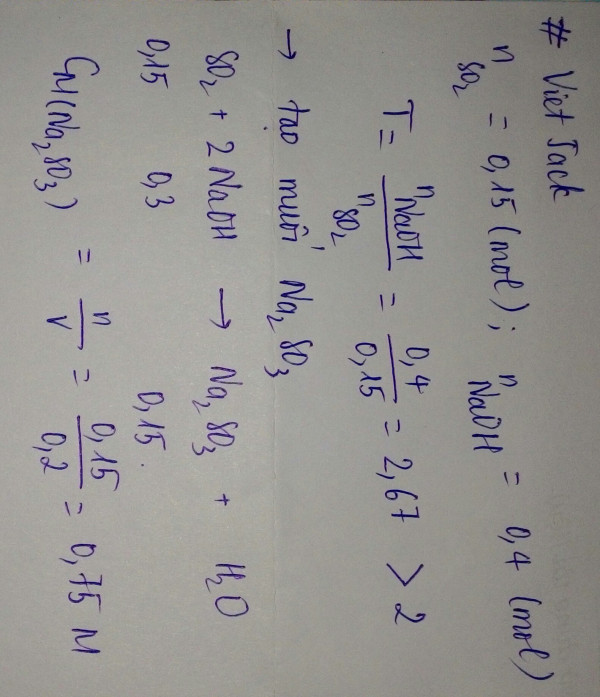 # Viet Jack
n SO₂ = 0,15 (mol); n NaOH = 0,4 (mol)
T = n NaOH / n SO₂ = 0,4 / 0,15 = 2,67 > 2
→ tạo muối Na₂SO₃
SO₂ + 2NaOH → Na₂SO₃ + H₂O
0,15 0,3 0,15.
CM(Na₂SO₃) = n / V = 0,15 / 0,2 = 0,75 M